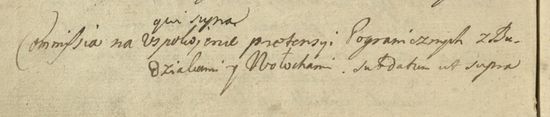 qui supra
Commissia na Uspokojenie pretensyi Pogranicznych z Bu-
dziakami y Wołochami. sub datum ut supra